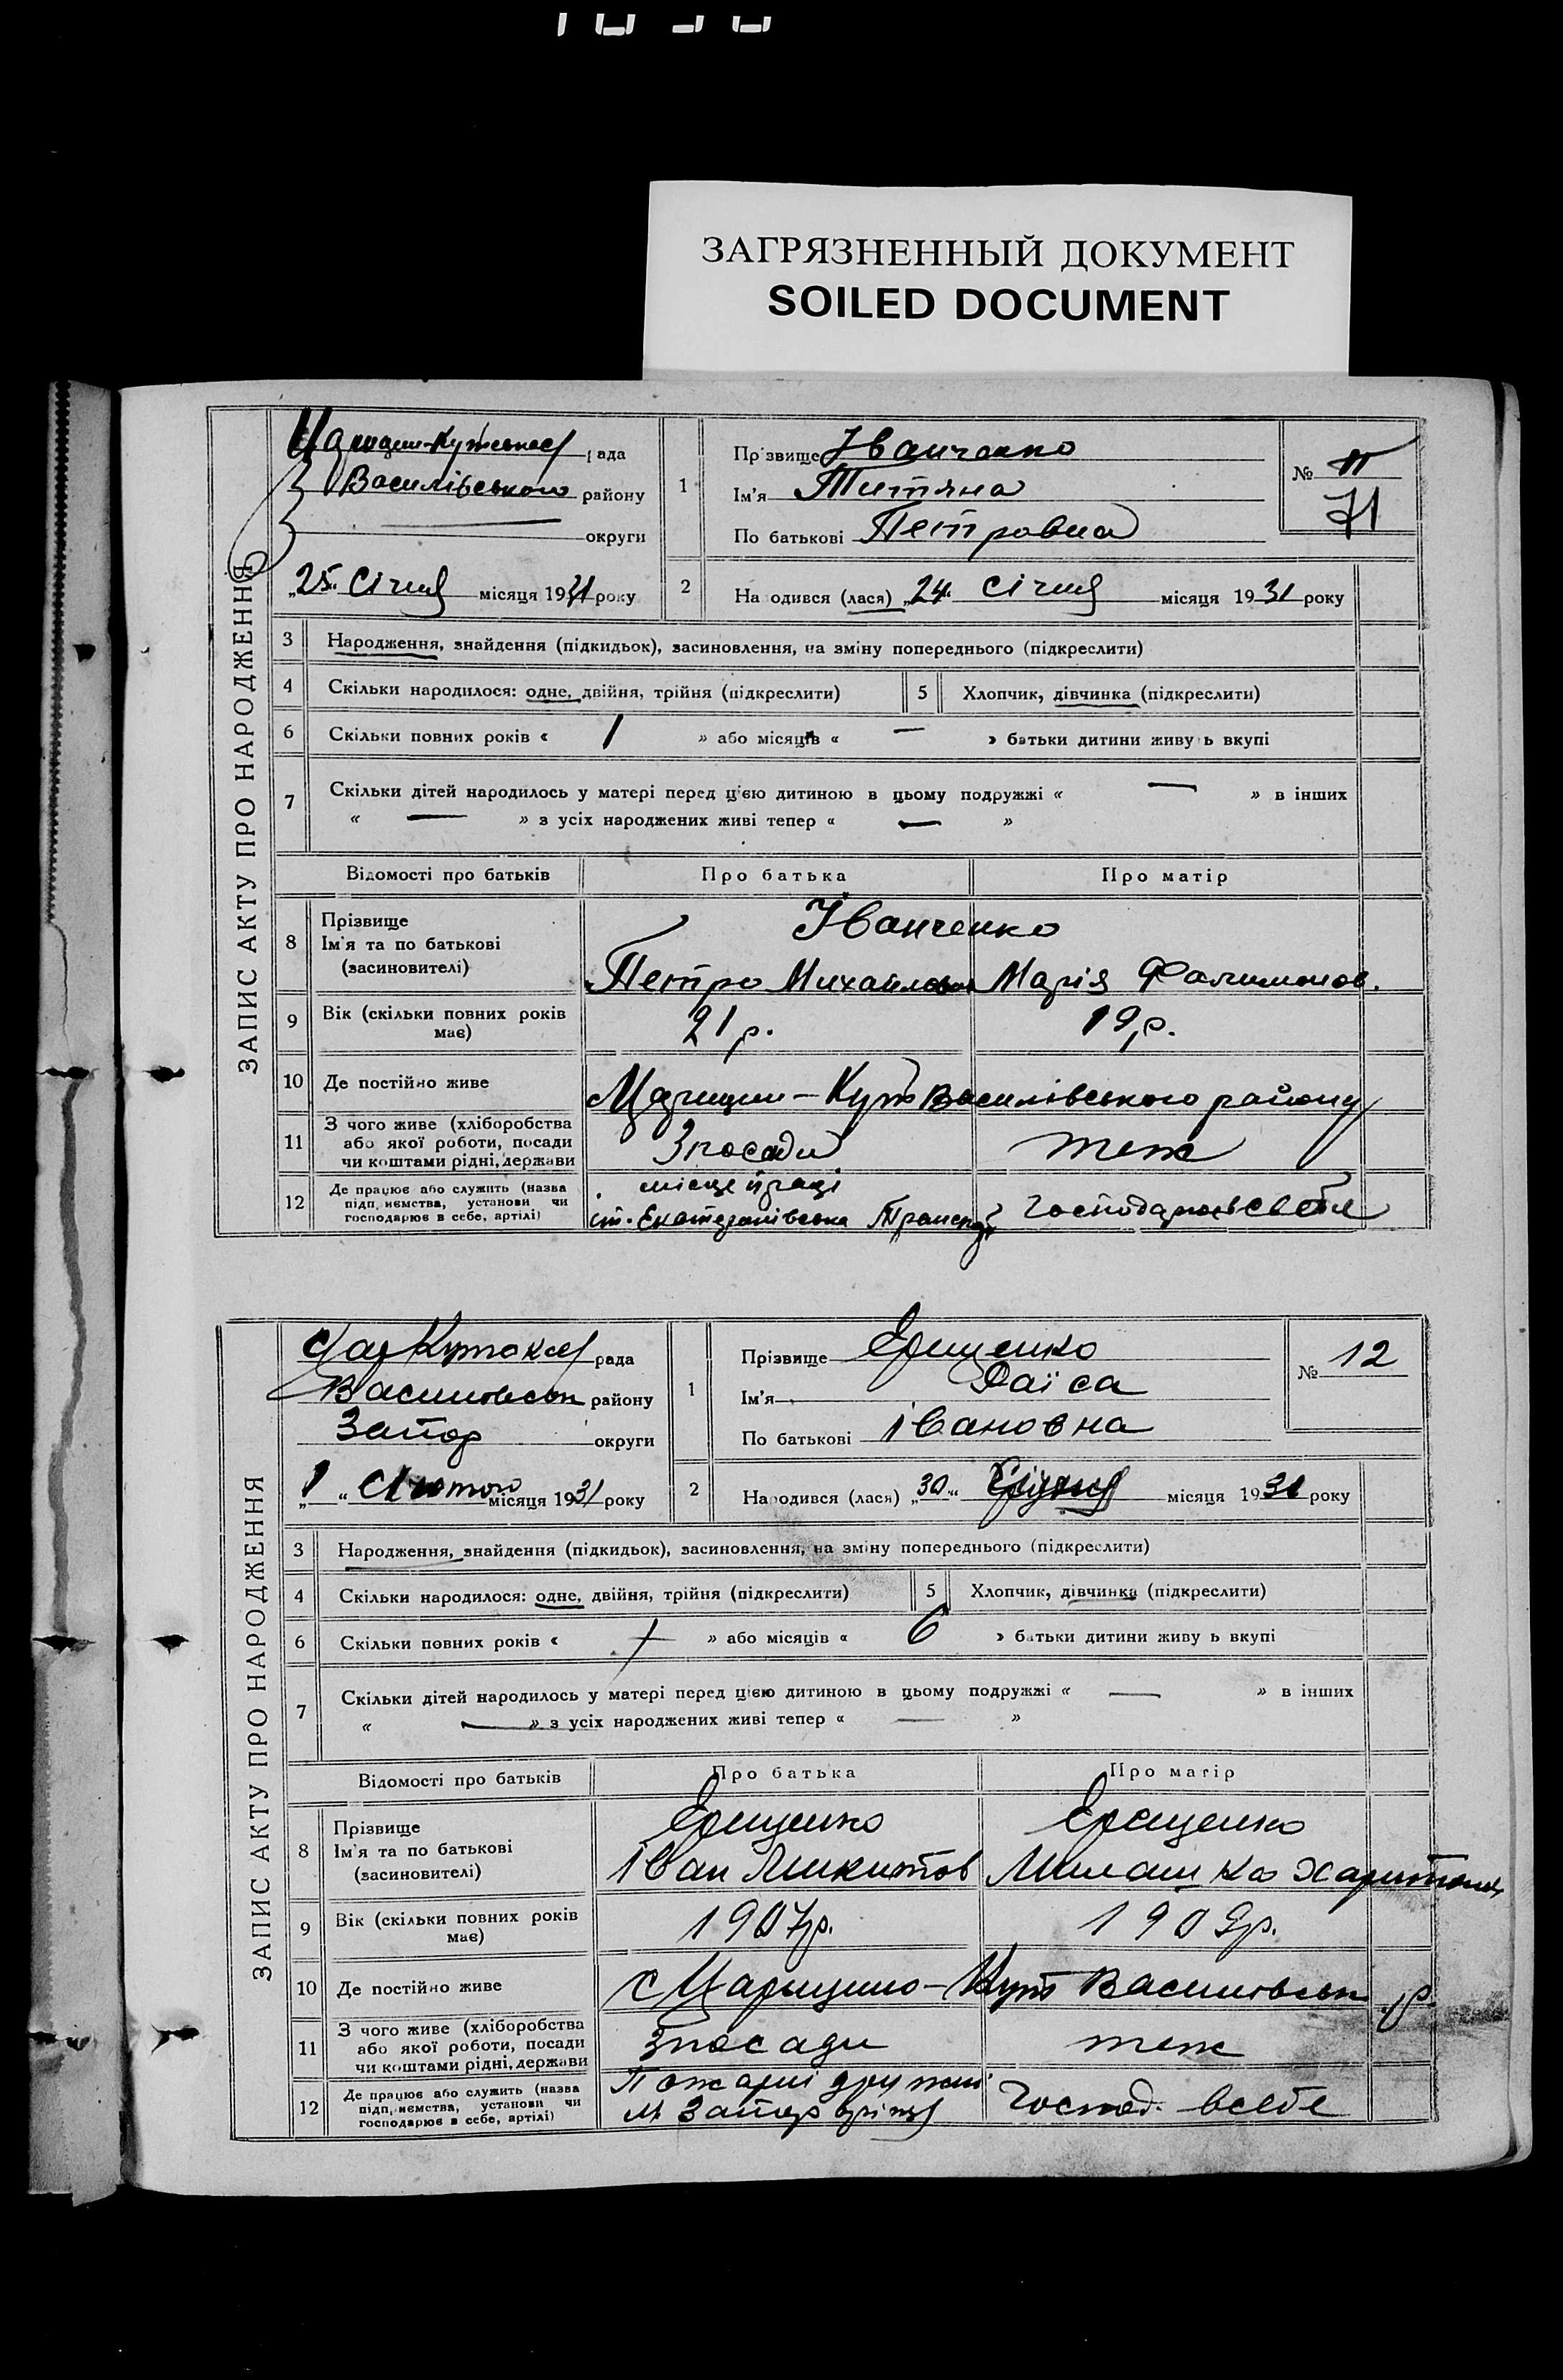 ЗАГРЯЗНЕННЫЙ ДОКУМЕНТ
SOILED DOCUMENT
ЗАПИС АКТУ ПРО НАРОДЖЕННЯ
рада
Василівського району
округи
„25“ Січня місяця 1931 року
1
Прізвище Іванченко
Ім'я Титяна
По батькові Петровна
№ 11
71
2
Народився (лася) „24“ Січня місяця 1931 року
3 Народження, знайдення (підкидьок), засиновлення, на зміну попереднього (підкреслити)
4 Скільки народилося: одне, двійня, трійня (підкреслити)
5 Хлопчик, дівчинка (підкреслити)
6 Скільки повних років « 1 » або місяців « — » батьки дитини живуть вкупі
7 Скільки дітей народилось у матері перед цією дитиною в цьому подружжі « — » в інших
« — » з усіх народжених живі тепер « — »
Відомості про батьків Про батька Про матір
8 Прізвище
Ім'я та по батькові
(засиновителі)
Іванченко
Петро Михайлович Марія Фалимонов.
9 Вік (скільки повних років
має)
21 р. 19 р.
10 Де постійно живе
Царицин-Кут Василівського району
11 З чого живе (хліборобства
або якої роботи, посади
чи коштами рідні, держави
З посади теж
12 Де працює або служить (назва
підприємства, установи чи
господарює в себе, артілі)
місце праці
ст. Господарює в себе
ЗАПИС АКТУ ПРО НАРОДЖЕННЯ
рада
району
Запор округи
„1“ Лютого місяця 1931 року
1
Прізвище Єрещенко
Ім'я Раїса
По батькові Івановна
№ 12
2
Народився (лася) „30“ Січня місяця 1931 року
3 Народження, знайдення (підкидьок), засиновлення, на зміну попереднього (підкреслити)
4 Скільки народилося: одне, двійня, трійня (підкреслити)
5 Хлопчик, дівчинка (підкреслити)
6 Скільки повних років « » або місяців « 6 » батьки дитини живуть вкупі
7 Скільки дітей народилось у матері перед цією дитиною в цьому подружжі « — » в інших
« — » з усіх народжених живі тепер « — »
Відомості про батьків Про батька Про матір
8 Прізвище
Ім'я та по батькові
(засиновителі)
Єрещенко Єрещенко
Іван Микитов Милашка
9 Вік (скільки повних років
має)
1907 р. 1909 р.
10 Де постійно живе
с Царицино-Кут Васиновськ р.
11 З чого живе (хліборобства
або якої роботи, посади
чи коштами рідні, держави
З посади теж
12 Де працює або служить (назва
підприємства, установи чи
господарює в себе, артілі)
М Запор Господ. в себе